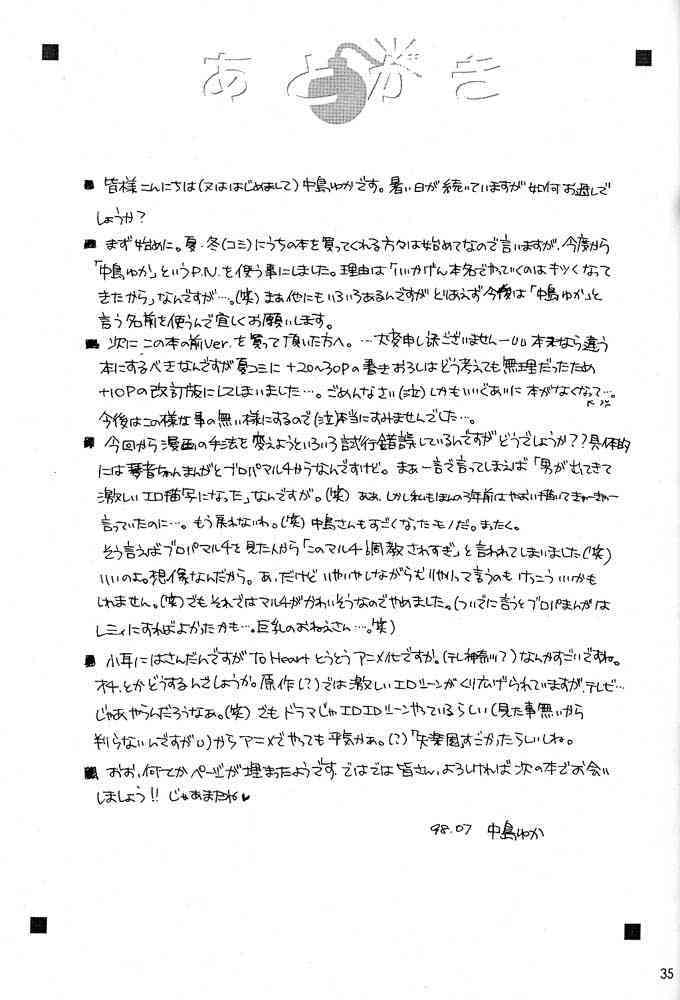 あとがき
■ 皆様こんにちは(又ははじめまして)中島ゆかです。暑い日が続いていますが如何お過しで
しょうか?
■ まず始めに。夏・冬(コミ)にうちの本を買ってくれる方々は始めてなので言いますが、今度から
「中島ゆか」というP.N.を使う事にしました。理由は「いいかげん本名でやっていくのはキツくなって
きたから」なんですが…。(笑)まぁ他にもいろいろあるんですがとりあえず今後は「中島ゆか」と
言う名前を使うんで宜しくお願いします。
■ 次にこの本の前Ver.を買って頂いた方へ。…大変申し訳ございませんー本来なら違う
本にするべきなんですが夏コミに+20~30Pの書きおろしはどう考えても無理だったため
+10Pの改訂版にしてしまいました…。ごめんなさい(泣)しかもいいぐあいに本がなくなって…。
今後はこの様な事の無い様にするので(泣)本当にすみませんでした…。
■ 今回から漫画の手法を変えようといろいろ試行錯誤しているんですがどうでしょうか??具体的
には琴音ちゃんまんがとブロパマルチからなんですけど。まぁ一言で言ってしまえば「男が出てきて
激しいエロ描写になった」なんですが。(笑)ああ、しかし私もほんの3年前はやおい描いてきゃーきゃー
言っていたのに…。もう戻れないわ。(笑)中島さんもすごくなったモノだ。まったく。
そう言えばブロパマルチを見た人から「このマルチ調教されすぎ」と言われてしまいました(笑)
いいのよ。想像なんだから。あ、だけどいやいやしながらむりやりって言うのもけっこういいかも
しれません。(笑)でもそれではマルチがかわいそうなのでやめました。(ついでに言うとブロパまんがは
レミィにすればよかったかも…巨乳のおねえさん…。笑)
■ 小耳にはさんだんですがTo Heartとうとうアニメ化ですか。(テレ神奈川?)なんかすごいですね。
オチ、とかどうするんでしょうか。原作(?)では激しいエロシーンがくり広げられていますが、テレビ…
じゃあやらんだろうなぁ。(笑)でもドラマじゃエロエロシーンやっているらしい(見た事無いから
判らないんですが)からアニメでやっても平気かぁ。(?)「失楽園」すごかったらしいしね。
■ おお、何とかページが埋まったようです。ではでは皆さん、よろしければ次の本でお会い
しましょう!!じゃあまたね♥
98.07 中島ゆか
35